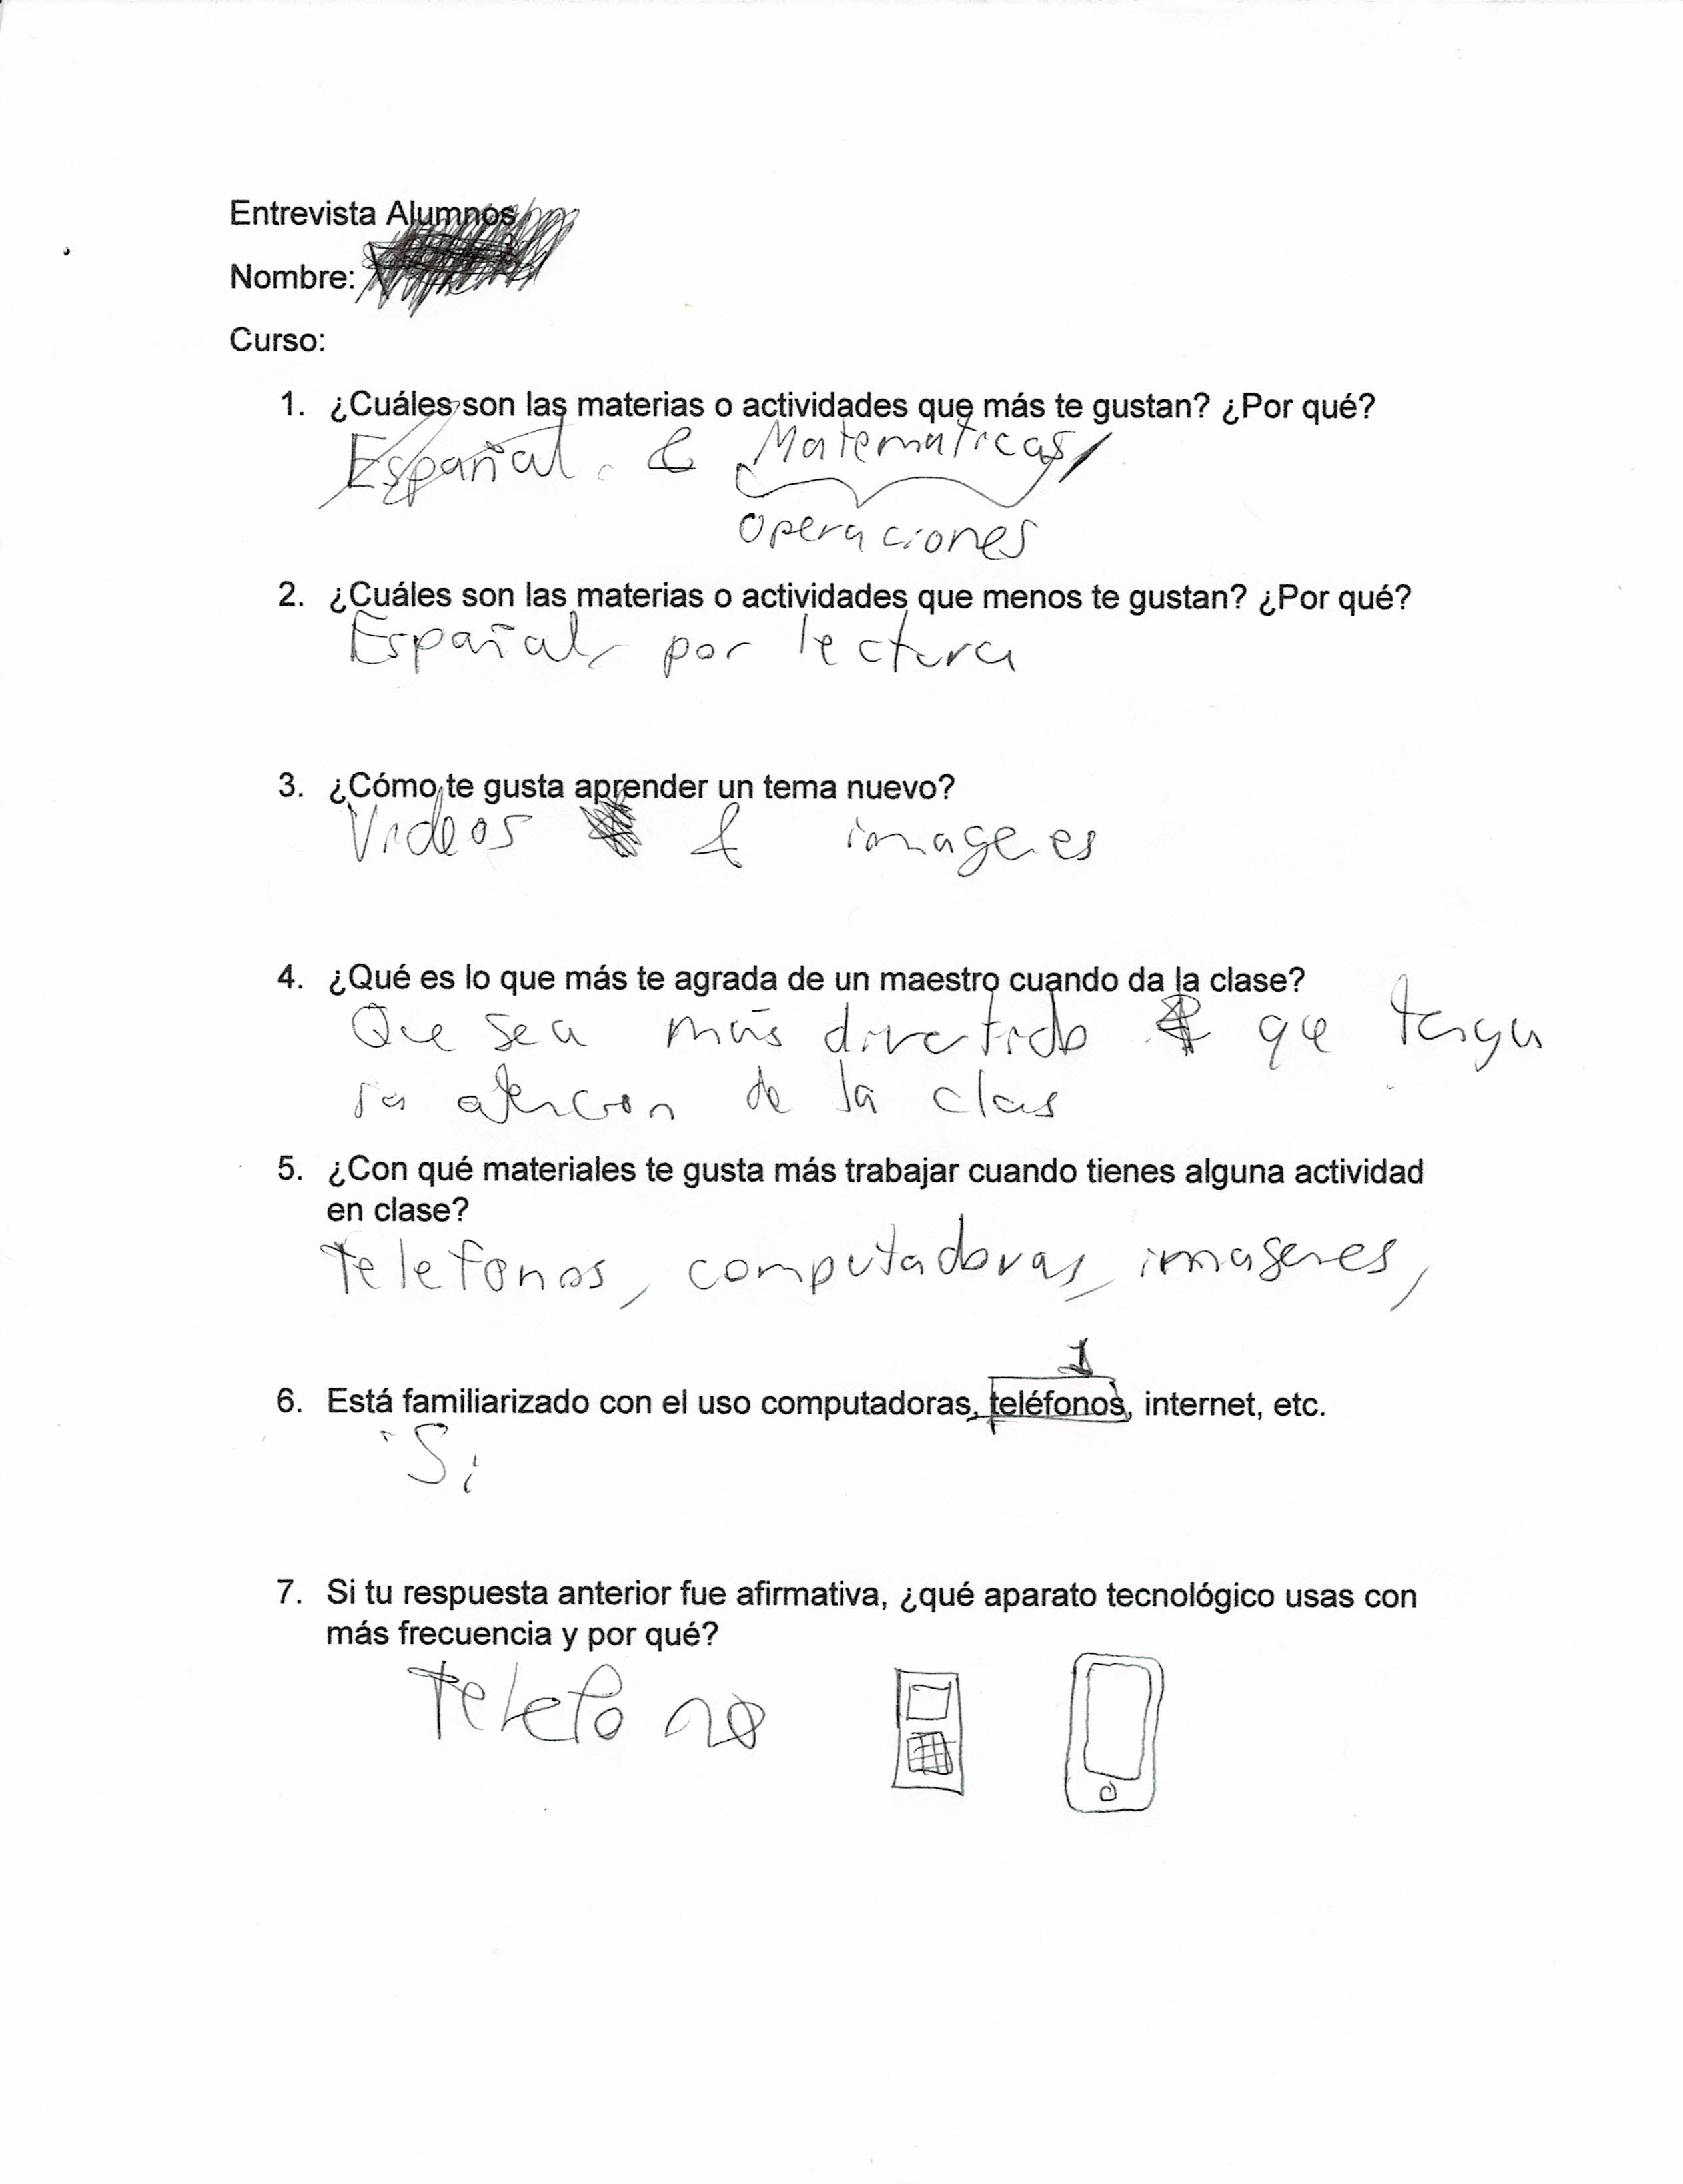 Entrevista Alumnos
Nombre:
Curso:
1. ¿Cuáles son las materias o actividades que más te gustan? ¿Por qué?
Españal. & Matematicas
operaciones
2. ¿Cuáles son las materias o actividades que menos te gustan? ¿Por qué?
Españal, por lectura
3. ¿Cómo te gusta aprender un tema nuevo?
Videos & imagenes
4. ¿Qué es lo que más te agrada de un maestro cuando da la clase?
Que sea más divertido & que tenga
la atencion de la clas
5. ¿Con qué materiales te gusta más trabajar cuando tienes alguna actividad
en clase?
telefonos, computadoras, imagenes,
1
6. Está familiarizado con el uso computadoras, teléfonos, internet, etc.
Si
7. Si tu respuesta anterior fue afirmativa, ¿qué aparato tecnológico usas con
más frecuencia y por qué?
telefono